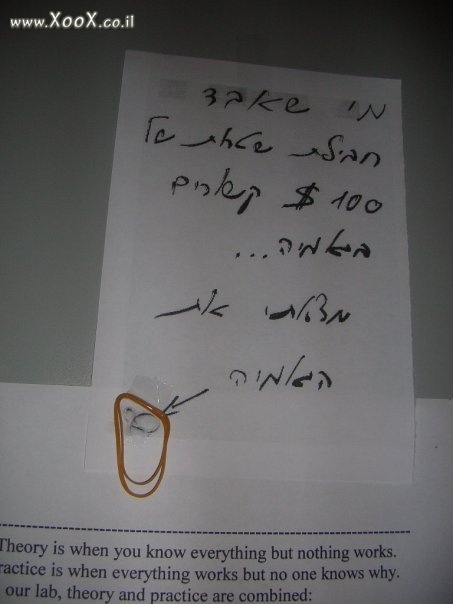 www.XooX.co.il
מי שאבד
חבילת שטרות של
100 $ קשורים
בגומיה...
מצאתי את
הגומיה
Theory is when you know everything but nothing works.
ractice is when everything works but no one knows why.
our lab, theory and practice are combined: